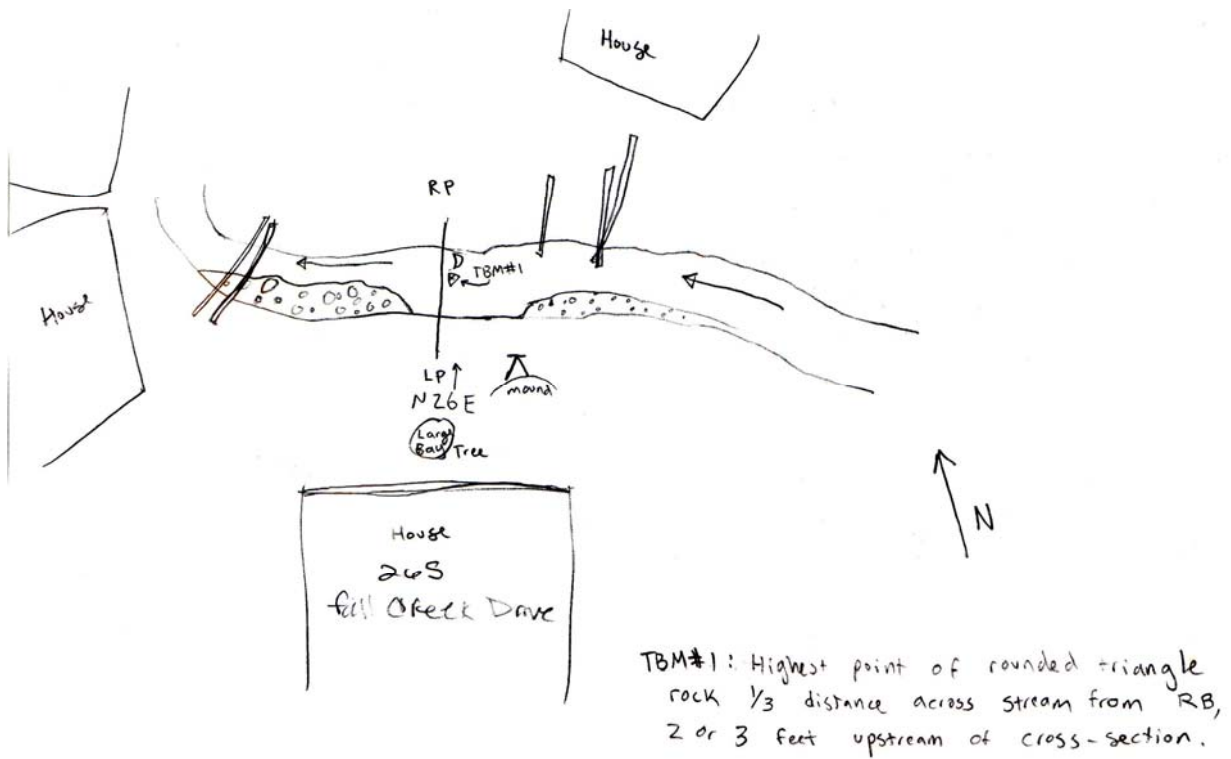 House
RP
TBM#1
House
LP
N26E
mound
Large
Bay Tree
House
265
fall Creek Drive
N
TBM#1: Highest point of rounded triangle
rock 1/3 distance across stream from RB,
2 or 3 feet upstream of cross-section.